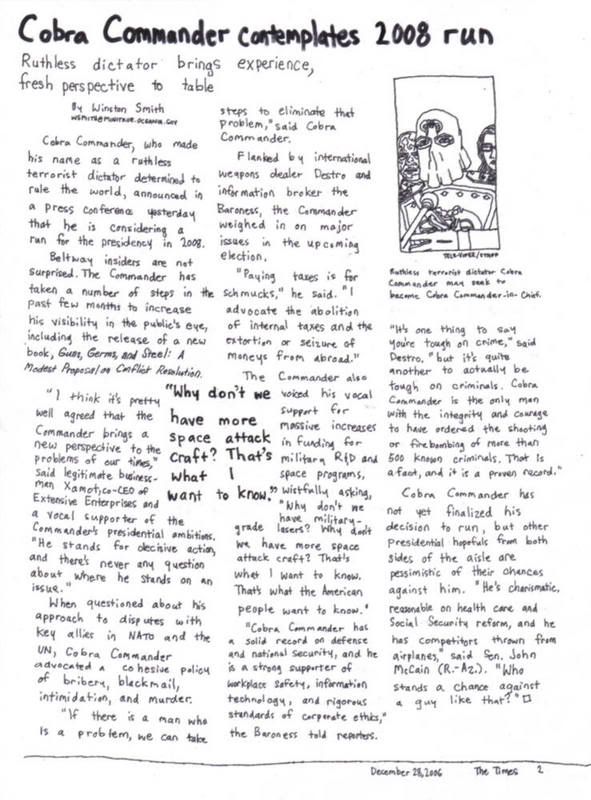 Cobra Commander contemplates 2008 run
Ruthless dictator brings experience,
fresh perspective to table
By Winston Smith
WSMITH@MINITRUE.OCEANIA.GOV
Cobra Commander, who made
his name as a ruthless
terrorist dictator determined to
rule the world, announced in
a press conference yesterday
that he is considering a
run for the presidency in 2008.
Beltway insiders are not
surprised. The Commander has
taken a number of steps in the
past few months to increase
his visibility in the public's eye,
including the release of a new
book, Guns, Germs, and Steel: A
Modest Proposal on Conflict Resolution.
"I think it's pretty
well agreed that the
Commander brings a
new perspective to the
problems of our times,"
said legitimate business-
man Xamot, co-CEO of
Extensive Enterprises and
a vocal supporter of the
Commander's presidential ambitions.
"He stands for decisive action,
and there's never any question
about where he stands on an
issue."
When questioned about his
approach to disputes with
key allies in NATO and the
UN, Cobra Commander
advocated a cohesive policy
of bribery, blackmail,
intimidation, and murder.
"If there is a man who
is a problem, we can take
steps to eliminate that
problem," said Cobra
Commander.
Flanked by international
weapons dealer Destro and
information broker the
Baroness, the Commander
weighed in on major
issues in the upcoming
election.
"Paying taxes is for
schmucks," he said. "I
advocate the abolition
of internal taxes and the
extortion or seizure of
moneys from abroad."
The Commander also
voiced his vocal
support for
massive increases
in funding for
military R&D and
space programs,
wistfully asking,
"Why don't we
have military-
grade lasers? Why don't
we have more space
attack craft? That's
what I want to know.
That's what the American
people want to know."
"Cobra Commander has
a solid record on defense
and national security, and he
is a strong supporter of
workplace safety, information
technology, and rigorous
standards of corporate ethics,"
the Baroness told reporters.
"Why don't we
have more
space attack
craft? That's
what I
want to know."
TELE-VIPER/STAFF
Ruthless terrorist dictator Cobra
Commander may seek to
become Cobra Commander-in-Chief.
"It's one thing to say
you're tough on crime," said
Destro, "but it's quite
another to actually be
tough on criminals. Cobra
Commander is the only man
with the integrity and courage
to have ordered the shooting
or firebombing of more than
500 known criminals. That is
a fact, and it is a proven record."
Cobra Commander has
not yet finalized his
decision to run, but other
presidential hopefuls from both
sides of the aisle are
pessimistic of their chances
against him. "He's charismatic,
reasonable on health care and
Social Security reform, and he
has competitors thrown from
airplanes," said Sen. John
McCain (R.-Az.). "Who
stands a chance against
a guy like that?"
December 28, 2006 The Times 2